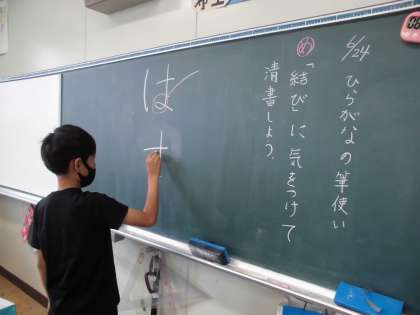 6/24 ひらがなの筆使い
め 「結び」に気をつけて
清書しよう。
は